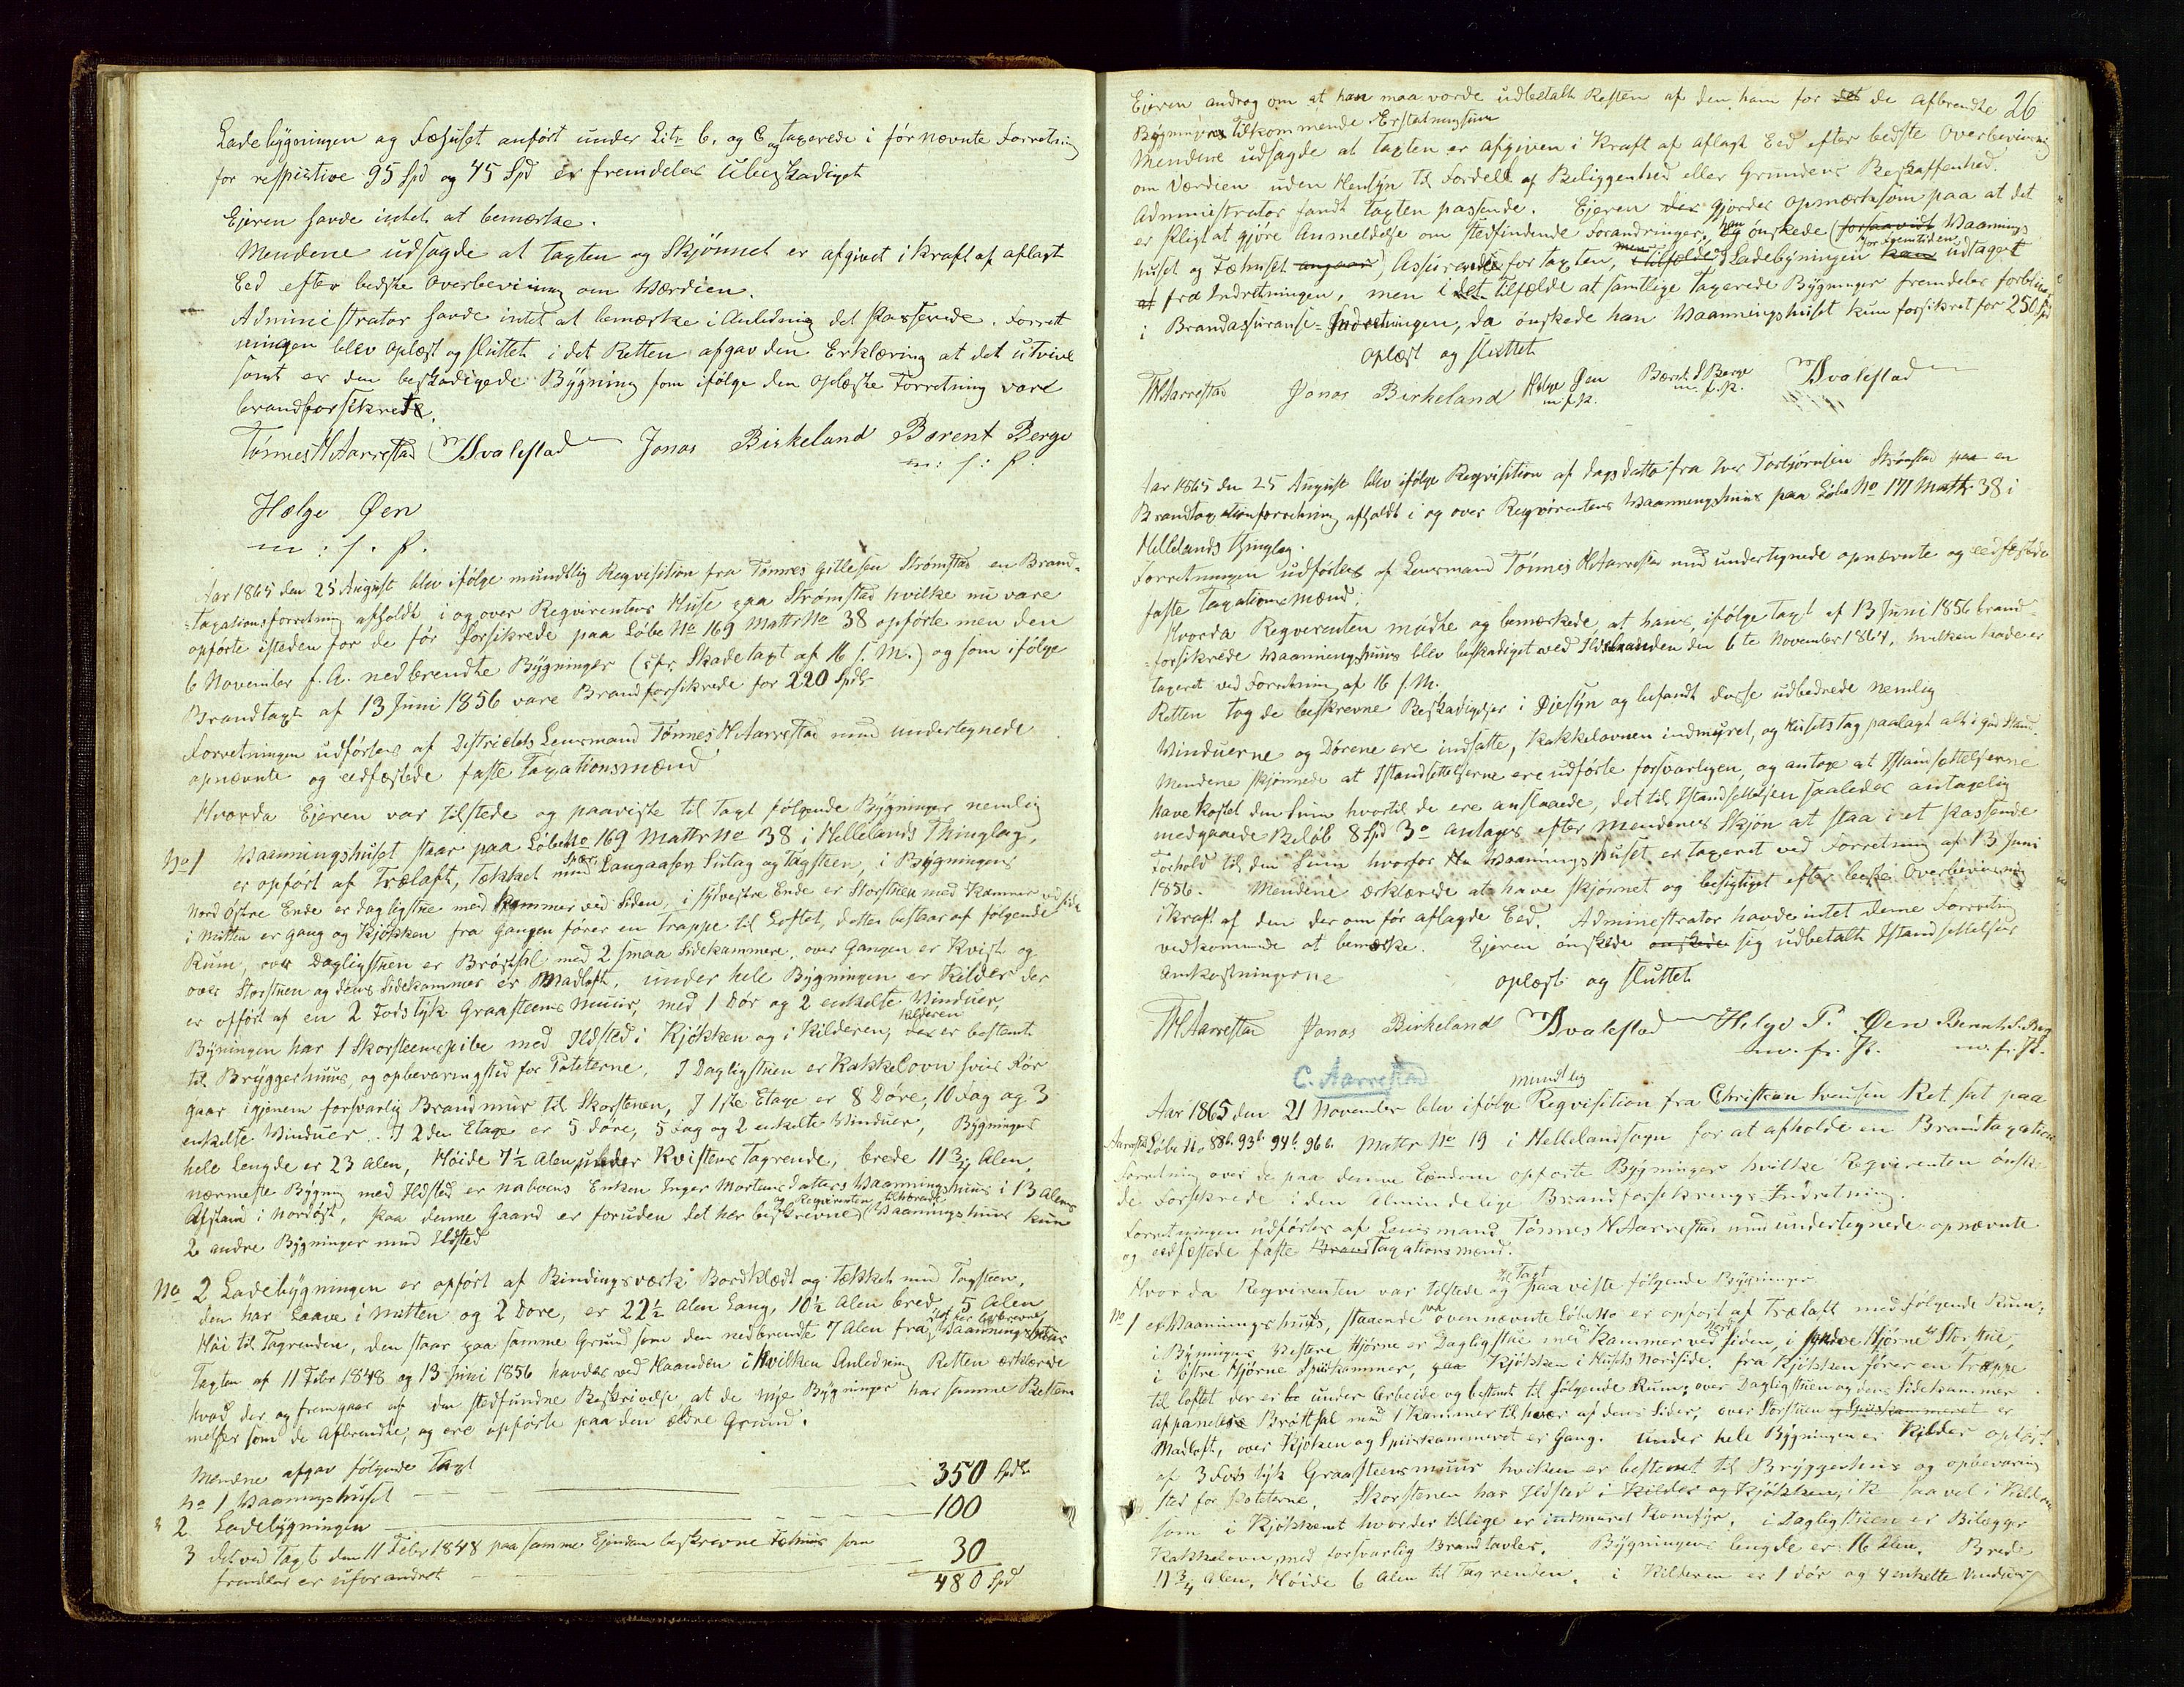 Ladebygningen og Fæhuset anført under Litr b. og C. og taxerede i før nævnte Forretning
for respictive 95 Spd og 45 Spd er fremdeles ubeskadiget
Ejeren havde intet at bemærke.
Mendene udsagde at Taxten og Skjønnet er afgivet i kraft af aflagt
Eed efter bedste Overbeviisning om Værdien.
Administrator havde intet at bemærke i Anledning det Passerede. Forrett
ningen blev oplæst og sluttet i det Retten afgav den Erklæring at det utvivl
somt er den beskadigede Bygning som ifølge den oplæste Forretning vare
brandforsikrede.
Tønnes H Aarrestad Svalestad Jonas Birkeland Bærent Berge
m: f: P.
Helge Øen
m: f. P.
Aar 1865 den 25 August blev ifølge mundtlig Reqvisition fra Tønnes Gitlesen Strømstad en Brand-
Taxationsforretning afholdt i og over Reqvirentens Huse paa Strømstad hvilke nu vare
opførte isteden for de før forsikrede paa Løbe No 169 Mattr No 38 opførte men den
6 November f. A. nedbrendte Bygninger (cfr. Skadetaxt af 16 s. M.) og som ifølge
Brandtaxt af 13 Juni 1856 vare Brandforsikrede for 220 Spdlr
Forretningen udførtes af Districtets Lensmand Tønnes H Aarrestad med undertegnede
opnævnte og eedfæstede faste Taxationsmænd
Hvorda Ejeren var tilstede og paaviste til Taxt følgende Bygninger nemlig
No 1 Vaanningshuset staar paa Løbe No 169 Mattr No 38 i Hellelands Thinglag,
er opført af Trælaft, Tækket med Spær Langaaser Sutag og Tagsteen, i Bygningens
Nord østre Ende er dagligstue med kammer ved Siden, i sydvestre Ende er Storstuen med Kammer ved side
i mitten er gang og Kjøkken fra Gangen fører en Trappe til Loftet, dette bestaar af følgende
Rum, over Dagligstuen er Brøstsal med 2 smaa Sidekammere, over Gangen er Kvist og
over Storstuen og dens Sidekammer er Madloft, under hele Bygningen er Kilder der
er opført af en 2 Fods tyk Graasteens Muur, med 1 Dør og 2 enkelte Vinduer,
Bygningen har 1 Skorsteenspibe med Ildsted i Kjøkken og i Kilderen, der Kilderen er bestemt
til Bryggerhuus, og opbevaringsted for Poteterne, I Dagligstuen er Kakkelovn hvis Rør
gaar igjenem forsvarlig Brandmur til Skorstenen, I 1ste Etage er 8 Døre, 10 Fag og 3
enkelte Vinduer.. I 2den Etage er 5 døre, 5 Fag og 2 enkelte Vinduer Bygningens
hele Lengde er 23 Alen, Høide 7½ Alen under Kvistens Tagrende, brede 11¾ Alen,
nærmeste Bygning med Ildsted er naboens Enken Inger Mortens datters Vaanningshuus i 13 Alens
Afstand i Nordøst, Paa denne Gaard er foruden det her beskrevne og Reqvirenten tilhørende Vaaningshuus kun
2 andre Bygninger med Ildsted
No 2 Ladebygningen er opført af Bindingsværk Bordklædt og Tækket med Tagsteen,
den har Laave i mitten og 2 Døre, er 22½ Alen Lang, 10½ Alen bred, 5 Alen
Høi til Tagrenden, den staar paa samme Grund som den nedbrendte 7 Alen fra det her beskrevne Vaanningshuus
Taxten af 11 Febr 1848 og 13 Juni 1856 havdes ved Haanden i Hvilken Anledning Retten ærklærede
hvad der og fremgaar af den stedfundne Beskrivelse, at de nye Bygninger har samme Bestem
melser som de Afbrendte, og ere opførte paa den ældre Grund.
Mændene afgav følgende Taxt
No 1 Vaaningshuset 350 Spdlr
" 2 Ladebygningen 100
3 det ved Taxt den 11 Febr 1848 paa samme Ejendom beskrevne Fæhuus som
fremdeles er uforandret 30
480 Spd
26
Ejeren androg om at han maa vorde udbetalt Resten af den ham for det de afbrendte
Bygninger tilkommende Erstatningssum
Mendene udsagde at Taxten er afgiven i Kraft af aflagt Eed efter bedste Overbeviisning
om Værdien uden Hensyn til Fordele af Beliggenhed eller Grundens Beskaffenhed.
Administrator fandt Taxten passende. Ejeren der gjordes opmærksom paa at det
er Pligt at gjøre Anmeldelse om stedfindende Forandringer, og han ønskede (forsaavidt Vaannings
huset og Fæhuset angaar) Assurerede for Taxten, men i tilfælde Ladebygningen kan for Fremtiden udtaget
af fra Indretningen, men i det tilfælde at samtlige Taxerede Bygninger fremdeles forblive
i Brandassuranse-Indretningen, da ønskede han Vaanningshuset kun forsikret for 250 Spd
Oplæst og sluttet
TH Aarrestad Jonas Birkeland Helge Øen Bærnt S Berge Svalestad
m. f. P. m. f. P.
Aar 1865 den 25 August blev ifølge Reqvisition af Dags Datto fra Iver Torbjørnsen Strømstad paa en
Brandtaxationsforretning afholdt i og over Reqvirentens Vaanningshuus paa Løbe No 171 Mattr 38 i
Hellelands Thinglag.
Forretningen udførtes af Lensmand Tønnes H Aarrestad med undertegnede opnævnte og eedfæstede
faste Taxationsmænd;
Hvorda Reqvirenten mødte og bemærkede, at hans ifølge Taxt af 13 Juni 1856 brand-
forsikrede Vaanningshuus blev beskadiget ved Ildebranden den 6te November 1864, hvilken Skade er
taxeret ved Forretning af 16 s. M.
Retten tog de beskrevne Beskadigelser i Øiesyn og befandt disse udbedrede nemlig
Vinduerne og Dørene ere indsatte, Kakkelovnen indmuret, og Husets Tag paalagt alt i god Stand.
Mendene skjønnede at Istandsættelserne ere udførte forsvarligen, og antoge at Istandsættelserne
have kostet den Sum hvortil de ere anslaaede, det til Istandsettelsen saaledes antagelig
medgaaede Beløb 8 Spd 3 antages efter Mendenes Skjøn at staa i et Passende
Forhold til den Sum hvorfor Vaanningshuset er taxeret ved Forretning af 13 Juni
1856. Mendene ærklærede at have skjønnet og besigtiget efter beste Overbeviisning
i kraft af den derom før aflagde Eed. Administrator havde intet denne Forretning
vedkommende at bemærke. Ejeren ønskede ønskede sig udbetalt Istandsettelses
Omkostningerne
Oplæst og sluttet
TH Aarrestad Jonas Birkeland Svalestad Helge T. Øen Bernt S. Berg
m. f. P. m. f. P.
C. Aarrestad
Aar 1865 den 21 November blev ifølge mundtlig Reqvisition fra Christian Svensen Ret sat paa
Aarrestad Løbe No 88b. 93b 94b. 96b. Mattr No 19 i Hellelandsogn for at afholde en Brandtaxations
Forretning over de paa denne Eiendom opførte Bygninger hvilke Reqvirenten ønske
de Forsikrede i den Almindelige Brandforsikrings-Indretning.
Forretningen udførtes af Lensmand Tønnes H Aarrestad med undertegnede opnævnte
og eedfæstede faste Brand Taxationsmænd.
Hvorda Reqvirenten var tilstede og til Taxt paaviste følgende Bygninger
No 1 et Vaanningshuus, staaende paa ovennævnte Løbe No er opført af Trælaft med følgende Rum;
i Bygningens Vestere Hjørne er Dagligstue med Kammer ved Siden, i søndre Nord Hjørne er Storstue,
i Østre Hjørne Spiiskammer, Kjøkken i Husets Nordside. fra Kjøkken fører en Trappe
til Loftet der er under Arbeide og bestemt til følgende Rum; over Dagligstuen og dens Sidekammer
af panelede Brøstsal med 1 Kammer til hver af dens Sider; over Storstuen og Spiiskammeret er
Madloft, over Kjøken og Spiiskammeret er Gang. Under hele Bygningen er Kilder opført
af 3 Fods tyk Graasteensmuur hvilken er bestemt til Bryggerhuus og opbevaring
sted for Poteterne. Skorstenen har Ildsted i Kilder og Kjøkken, saavel i Kilderen
som i Kjøkkenet hvorder tillige er indmuret Komfyr, i Dagligstuen er Bilægger
Kakkelovn med forsvarlig Brandtavler. Bygningens lengde er 16 Alen, Brede
11¾ Alen, Høide 6 Alen til Tagrenden. i Kilderen er 1 dør og 4 enkelte Vinduer